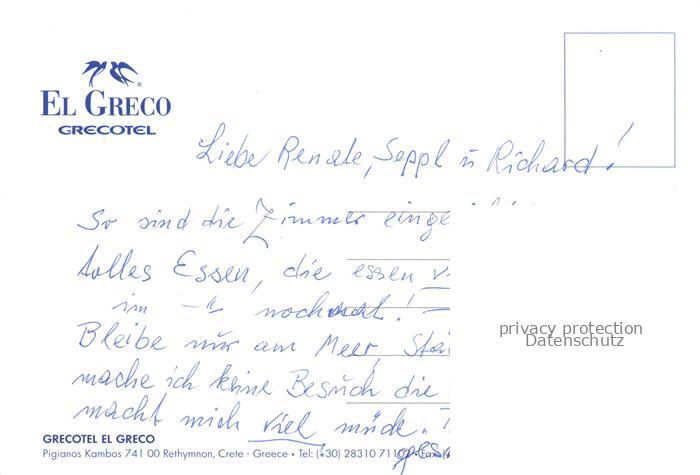 EL GRECO
GRECOTEL
Liebe Renate, Seppl u Richard!
So sind die Zimmer einge
tolles Essen, die essen
im
Bleibe nur am Meer,
mache ich keine Besuch die
macht mich viel müde.
privacy protection
Datenschutz
GRECOTEL EL GRECO
Pigianos Kambos 741 00 Rethymnon, Crete · Greece • Tel: (+30) 28310 71102